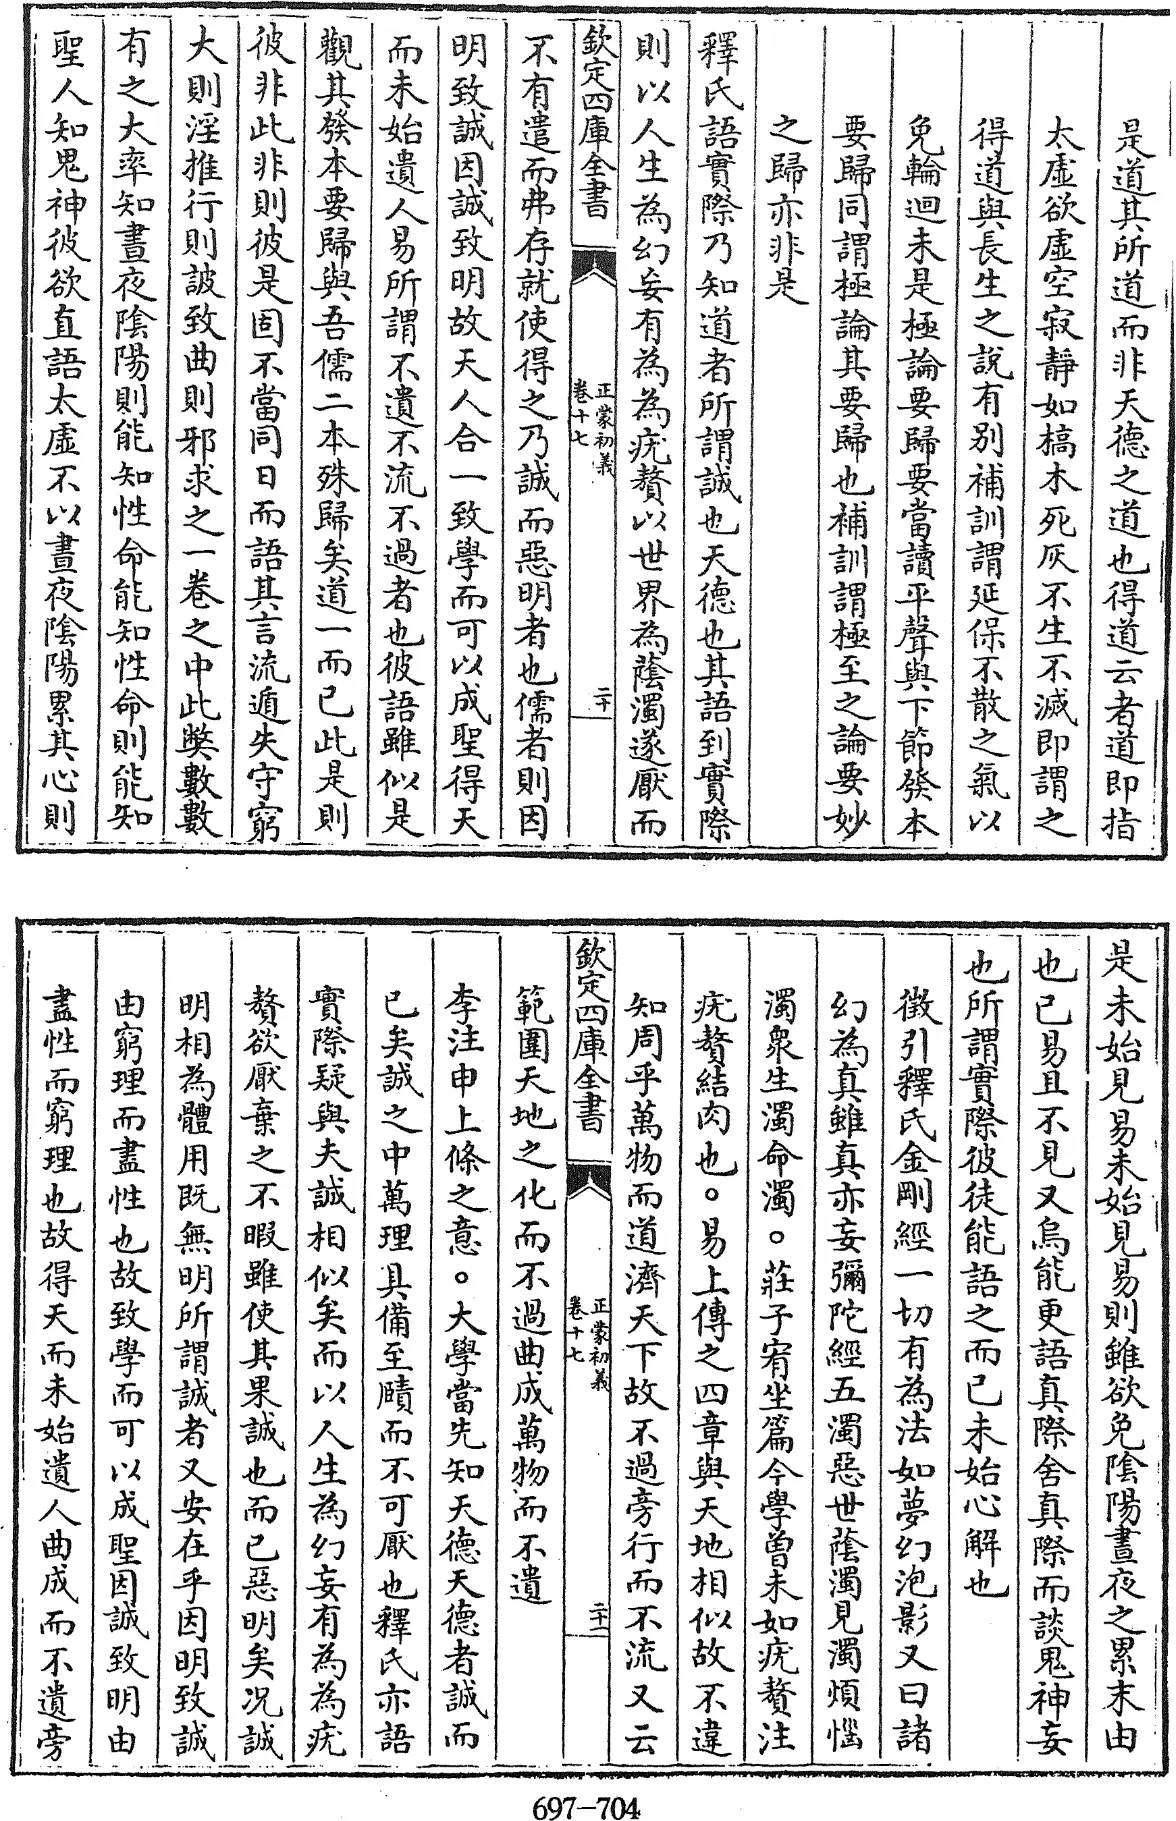 是道其所道而非天德之道也得道云者道即指
太虛欲虛空寂靜如槁木死灰不生不滅即謂之
得道與長生之說有別補訓謂延保不散之氣以
免輪迴未是極論要歸要當讀平聲與下節發本
要歸同謂極論其要歸也補訓謂極至之論要妙
之歸亦非是
釋氏語實際乃知道者所謂誠也天德也其語到實際
則以人生為幻妄有為為疣贅以世界為蔭濁遂厭而
欽定四庫全書
正蒙初義
卷十七
二十
不有遣而弗存就使得之乃誠而惡明者也儒者則因
明致誠因誠致明故天人合一致學而可以成聖得天
而未始遺人易所謂不遺不流不過者也彼語雖似是
觀其發本要歸與吾儒二本殊歸矣道一而已此是則
彼非此非則彼是固不當同日而語其言流遁失守窮
大則淫推行則詖致曲則邪求之一卷之中此獘數數
有之大率知晝夜陰陽則能知性命能知性命則能知
聖人知鬼神彼欲直語太虛不以晝夜陰陽累其心則
是未始見易未始見易則雖欲免陰陽晝夜之累末由
也已易且不見又烏能更語真際舍真際而談鬼神妄
也所謂實際彼徒能語之而已未始心解也
徵引釋氏金剛經一切有為法如夢幻泡影又曰諸
幻為真雖真亦妄彌陀經五濁惡世蔭濁見濁煩惱
濁衆生濁命濁○莊子宥坐篇今學曾未如疣贅注
疣贅結肉也○易上傳之四章與天地相似故不違
知周乎萬物而道濟天下故不過旁行而不流又云
欽定四庫全書
正蒙初義
卷十七
二十一
範圍天地之化而不過曲成萬物而不遺
李注申上條之意○大學當先知天德天德者誠而
已矣誠之中萬理具備至賾而不可厭也釋氏亦語
實際疑與夫誠相似矣而以人生為幻妄有為為疣
贅欲厭棄之不暇雖使其果誠也而已惡明矣况誠
明相為體用既無明所謂誠者又安在乎因明致誠
由窮理而盡性也故致學而可以成聖因誠致明由
盡性而窮理也故得天而未始遺人曲成而不遺旁
697-704